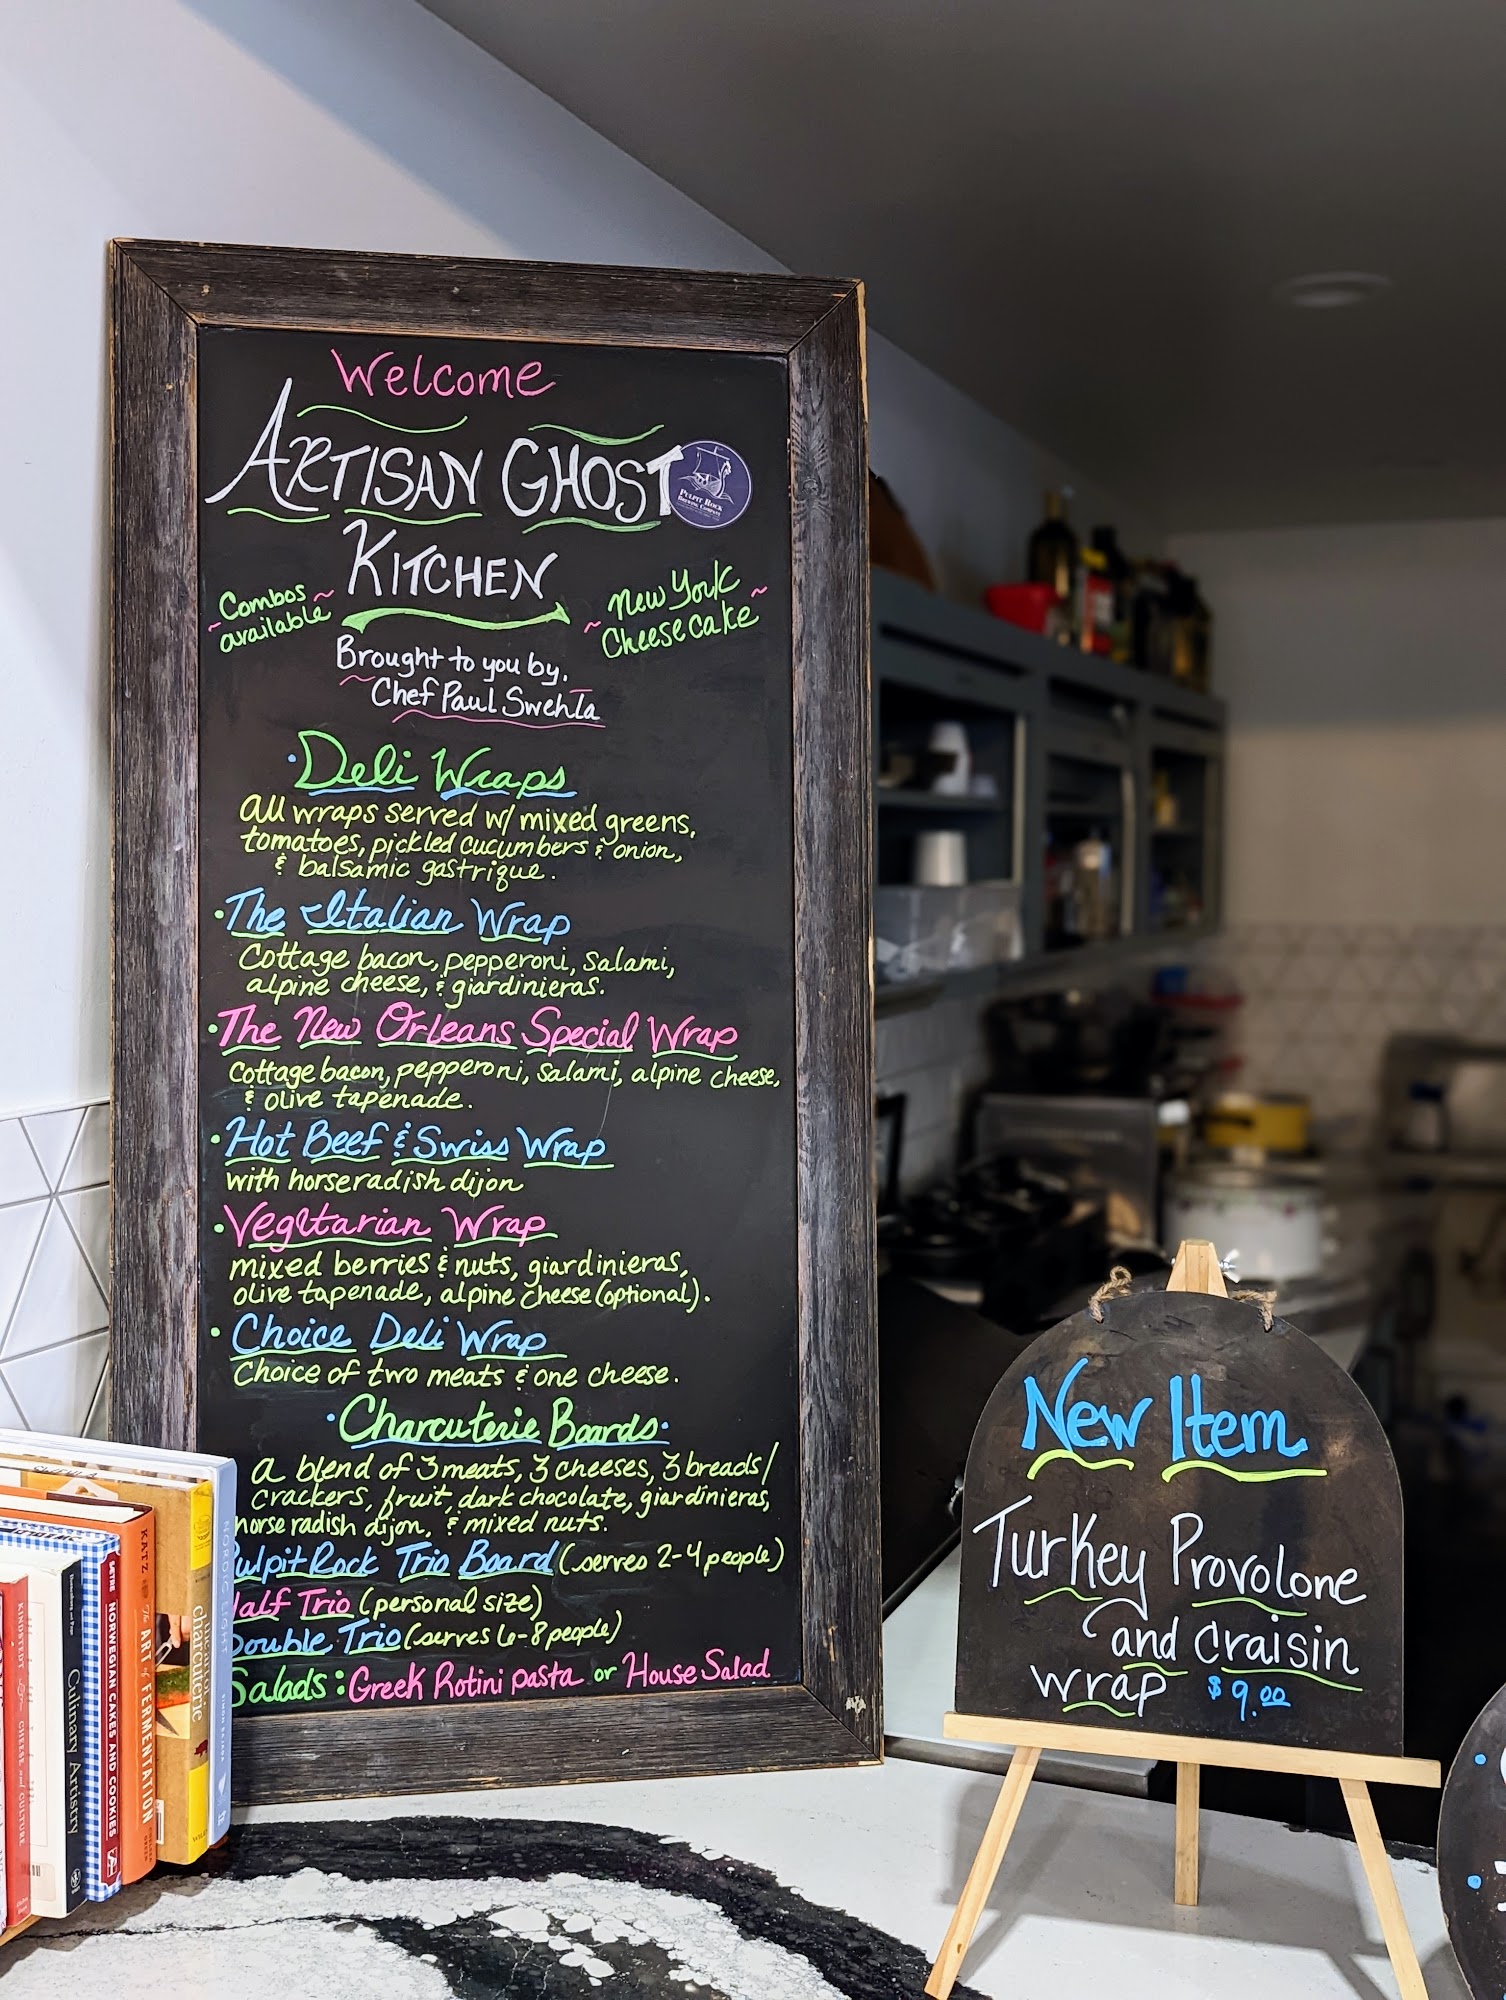 Welcome
ARTISAN GHOST
PULPIT ROCK
BREWING COMPANY
KITCHEN
~Combos~
available
~New York~
Cheesecake
Brought to you by.
Chef Paul Swehla
Deli Wraps
All wraps served w/ mixed greens,
tomatoes, pickled cucumbers & onion,
& balsamic gastrique.
• The Italian Wrap
Cottage bacon, pepperoni, salami,
alpine cheese, & giardinieras.
• The New Orleans Special Wrap
Cottage bacon, pepperoni, salami, alpine cheese,
& olive tapenade.
• Hot Beef & Swiss Wrap
with horseradish dijon
• Vegitarian Wrap
mixed berries & nuts, giardinieras,
olive tapenade, alpine cheese (optional).
• Choice Deli Wrap
Choice of two meats & one cheese.
• Charcuterie Boards •
A blend of 3 meats, 3 cheeses, 3 breads/
crackers, fruit, dark chocolate, giardinieras,
horse radish dijon, & mixed nuts.
Pulpit Rock Trio Board (serves 2-4 people)
Half Trio (personal size)
Double Trio (serves 6-8 people)
Salads: Greek Rotini pasta or House Salad
New Item
Turkey Provolone
and Craisin
wrap $9.00
KINDSTEDT CHEESE AND CULTURE
Culinary Artistry
NORWEGIAN CAKES AND COOKIES
KATZ The ART of FERMENTATION
charcuterie
NORDIC LIGHT